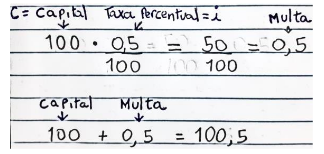 C = Capital Taxa Percentual = i Multa
100 · 0,5 = 50 = 0,5
100 100
Capital Multa
100 + 0,5 = 100,5